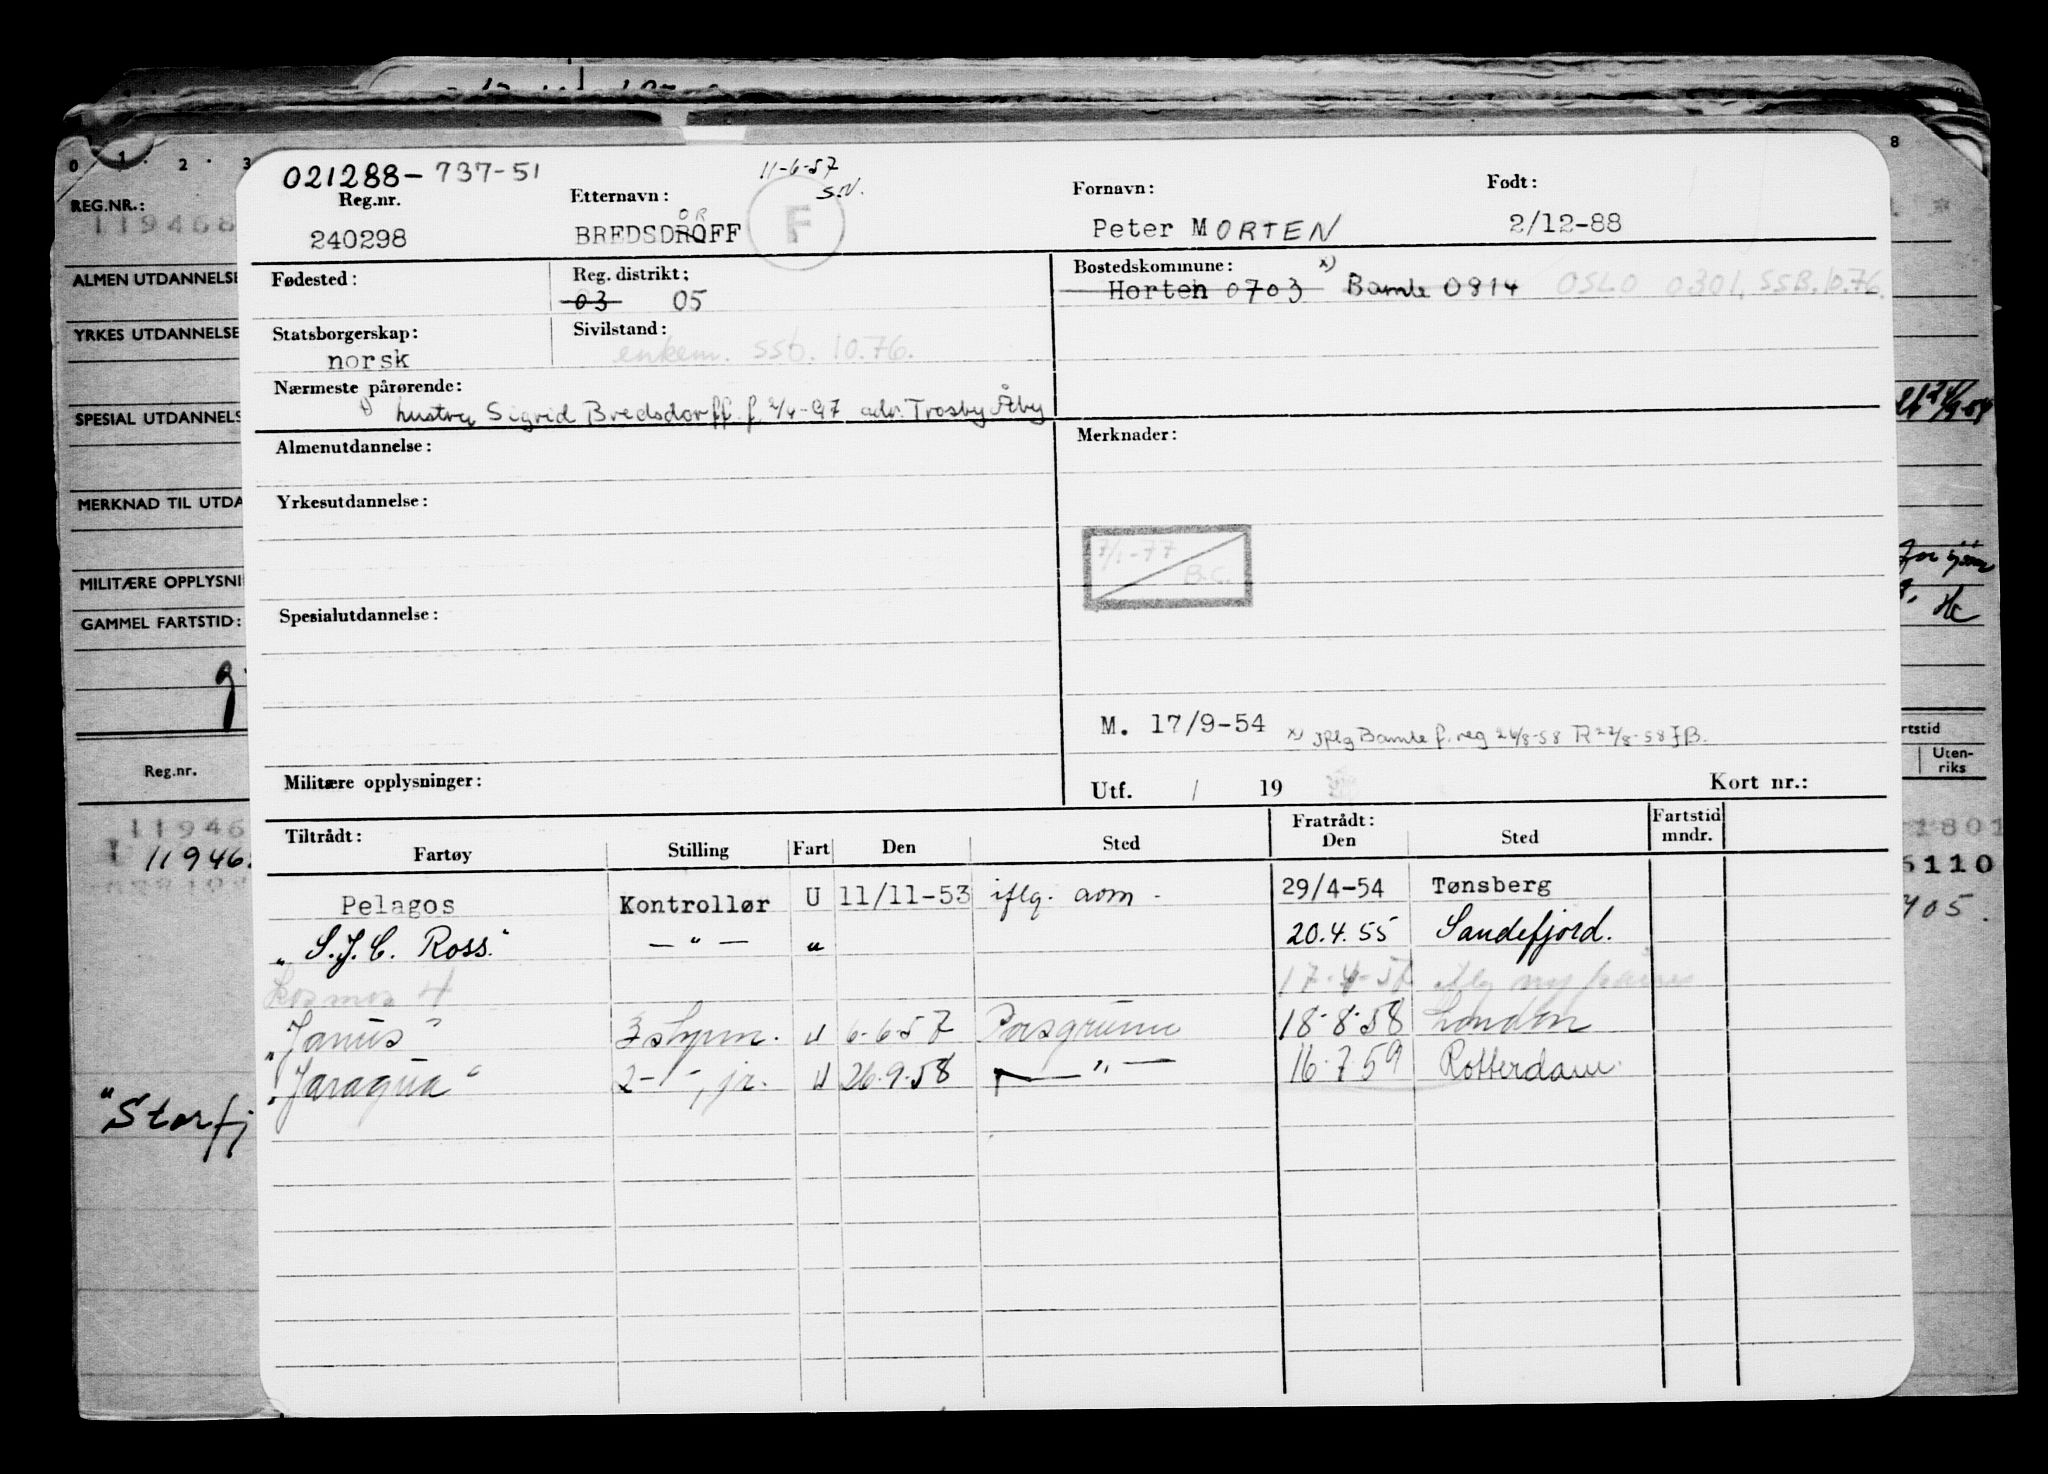 0 1 · 2 · 3
8
021288-737-51
11-6-57
S.N.
Reg.nr.
Etternavn:
Fornavn:
Født:
REG.NR.:
119468
240298
BREDSDROFF
OR
F
Peter MORTEN
2/12-88
ALMEN UTDANNELSE
Fødested:
Reg. distrikt:
03 05
Bostedskommune:
x)
Horten 0703 Bamle 0814 OSLO 0301, SSB.10.76.
YRKES UTDANNELSE
Statsborgerskap:
norsk
Sivilstand:
enkem. ssb. 10.76.
Nærmeste pårørende:
hustru Sigrid Bredsdorff f. 2/4-97 adr. Trosby Åby
SPESIAL UTDANNELS
Almenutdannelse:
Merknader:
MERKNAD TIL UTDA
Yrkesutdannelse:
7/1-77
B.C.
MILITÆRE OPPLYSNI
GAMMEL FARTSTID:
Spesialutdannelse:
Hc
M. 17/9-54
x) Iflg Bamle f.reg 26/8-58 R 27/8-58 JB.
rtstid
Uten-
riks
Reg.nr.
Militære opplysninger:
Utf. / 19
Kort nr.:
Tiltrådt:
Fartøy
Stilling
Fart
Den
Sted
Fratrådt:
Den
Sted
Fartstid
mndr.
11946
11946
1801
5110
705.
Pelagos Kontrollør U 11/11-53 iflg. aom - 29/4-54 Tønsberg
"S.J.C. Ross." — " — " 20.4.55 Sandefjord.
Kosmos 4 17-4-57
"Janus" 3 styrm. U 6-6-57 Porsgrunn 18-8-58 London
"Jaragua" 2- " , jr. U 26.9.58 — " — 16.7.59 Rotterdam.
"Storfj